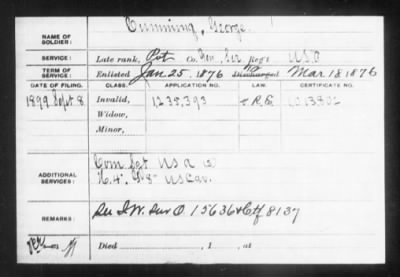 Cumming, George.
NAME OF SOLDIER:
SERVICE: Late rank, Pvt Co. Gen. Ser Reg't U.S.A
TERM OF SERVICE: Enlisted Jan 25, 1876 Discharged Mar 18 1876
DATE OF FILING. CLASS. APPLICATION NO. LAW. CERTIFICATE NO.
1899 Sept 8 Invalid, 1235,393
Widow,
Minor,
ADDITIONAL SERVICES: Com Sgt US A
US Cav.
REMARKS: See I.W. Sur O. 15636 & Ctf 8137
Died , 1 , at